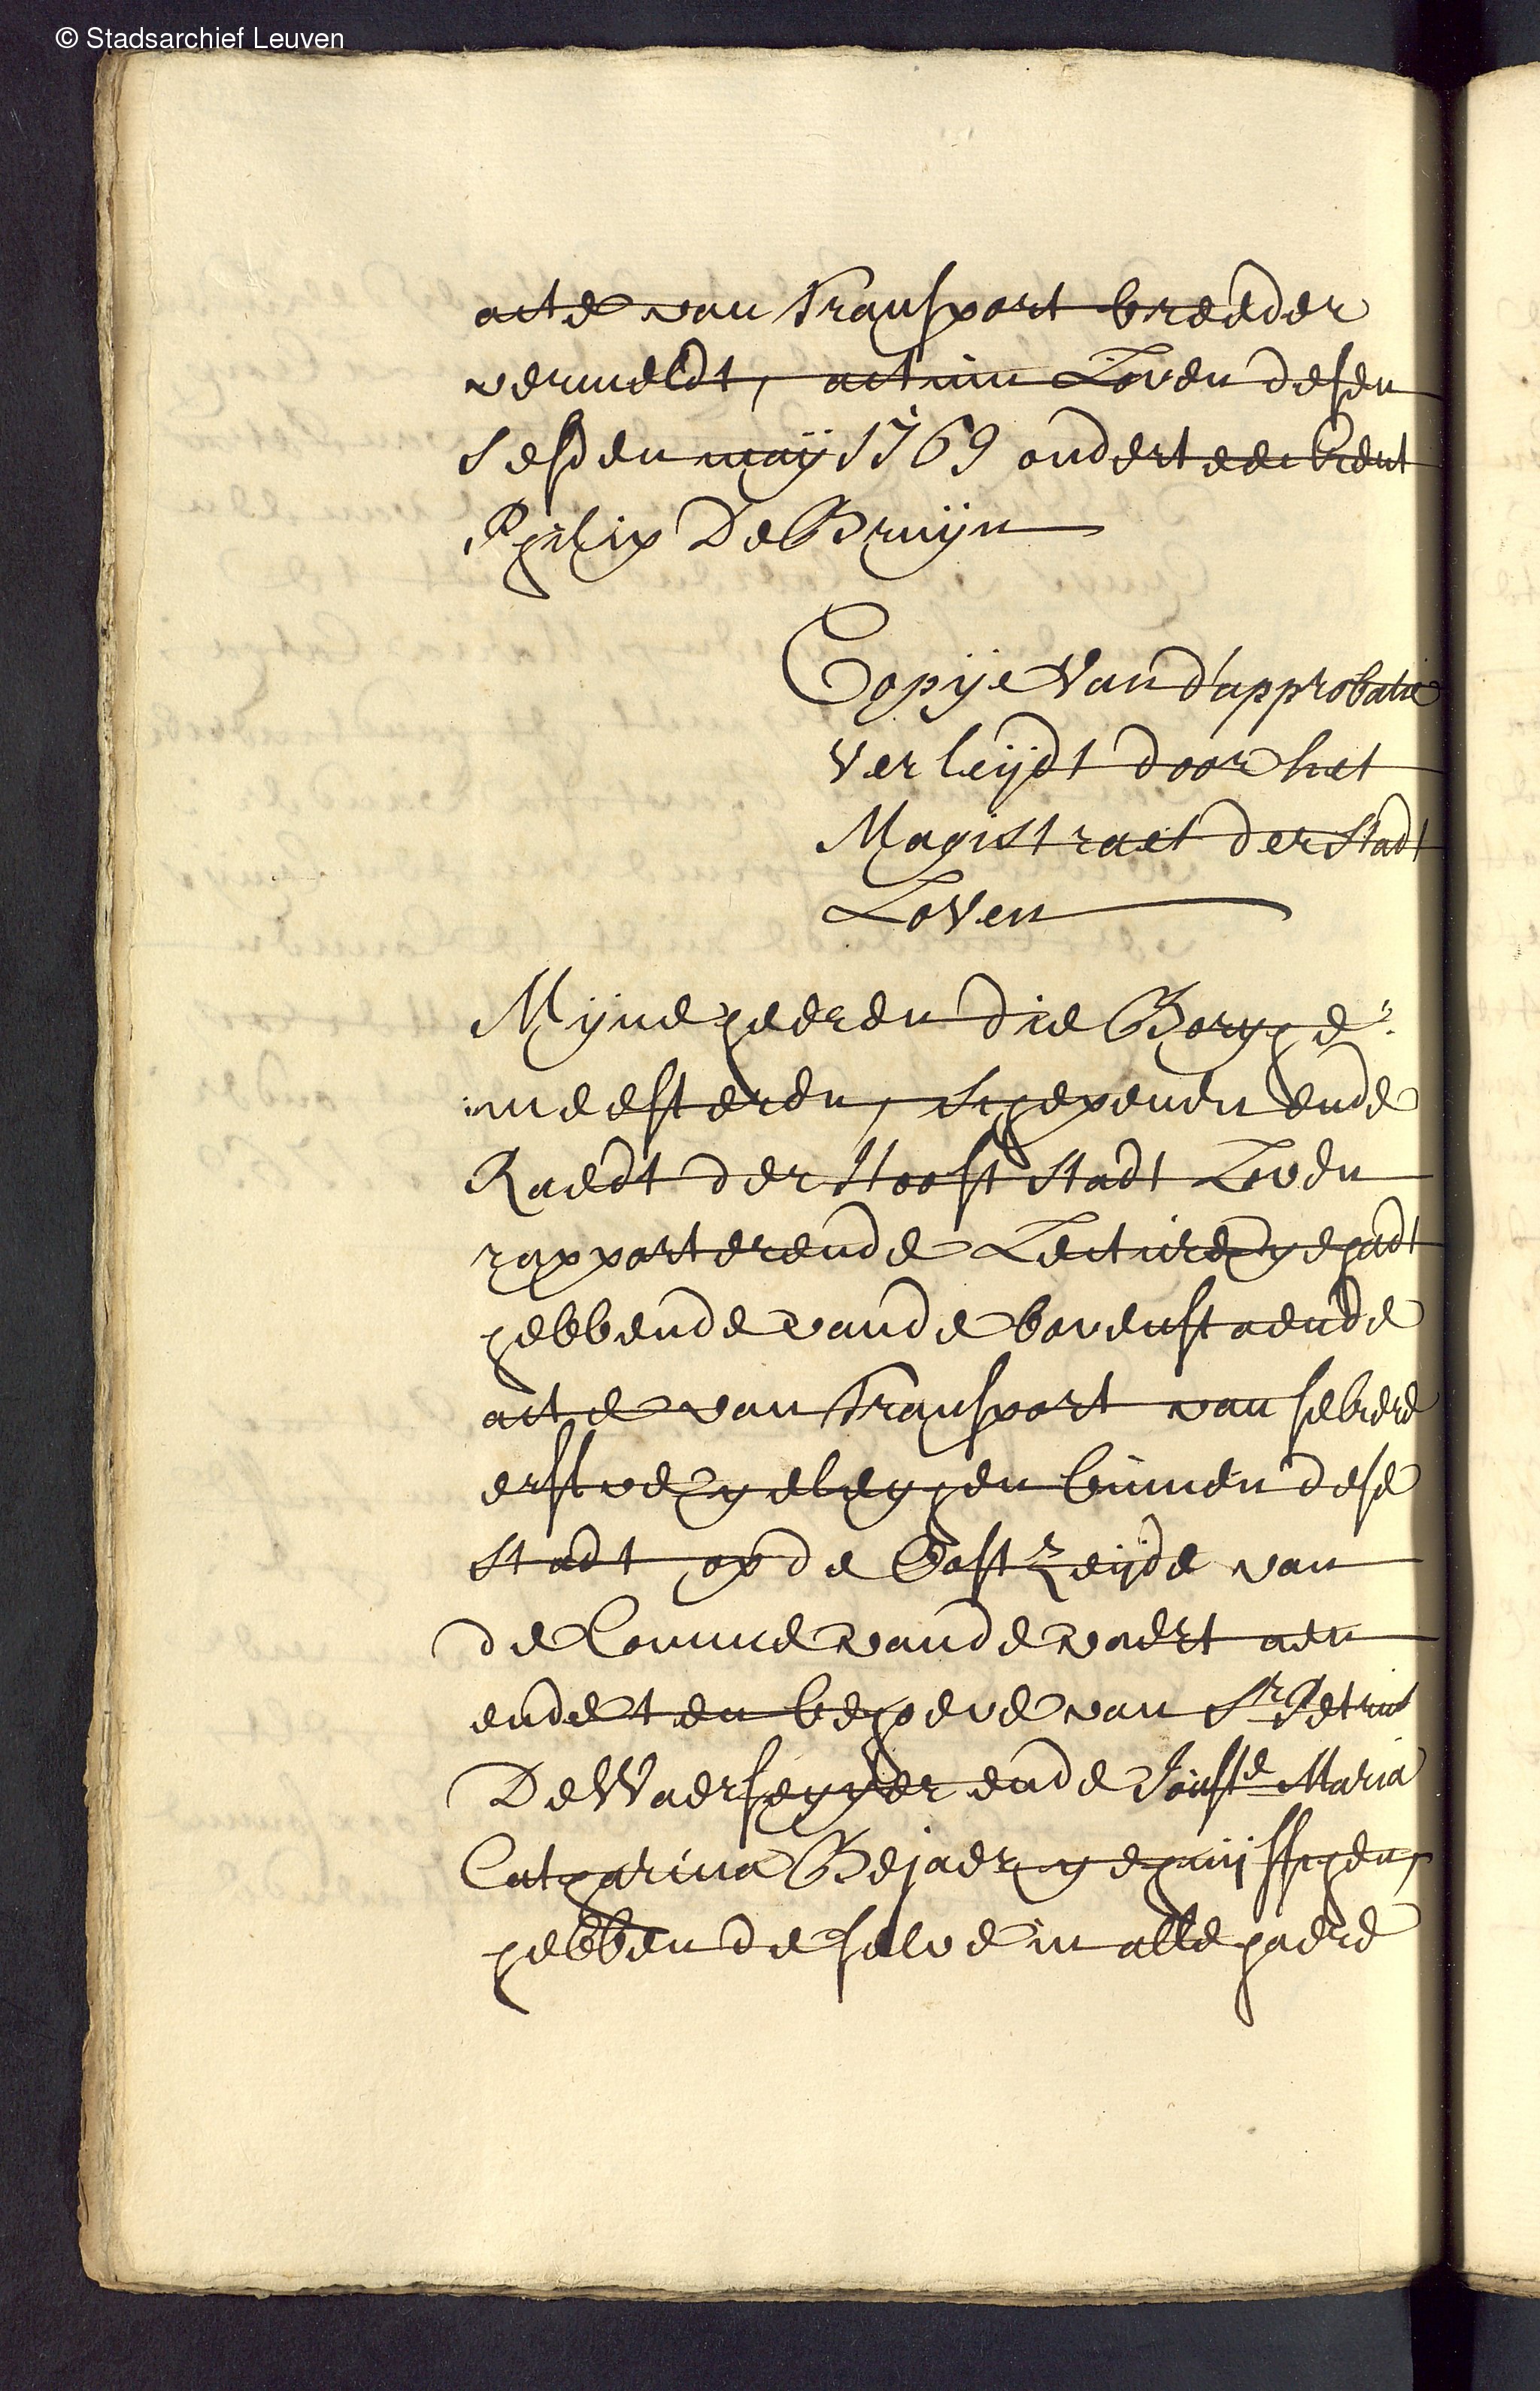 © Stadsarchief Leuven
acte van Transport breeder
vermeldt, actum Loven desen
sesden maÿ 1769 onderteeckent
Philip De Bruÿn
Copÿe Van d'approbatie
Verleÿdt door het
Magistraet der Stadt
Loven
Mÿne heeren die Borghe
meesteren, schepenen ende
Raedt der Hooft Stadt Loven
rapporterende Lecture gehadt
hebbende vande bovenstaende
acte van Transport van sekere
erffve geleghen binnen dese
Stadt op de Oost Zeÿde van
de Comme vande vaert aen
ende ten behoeve van Sr Petrus
De Waersegger ende Jouffe Maria
Catharina Bejaer gehuÿsschen,
hebben de selve in alle haere